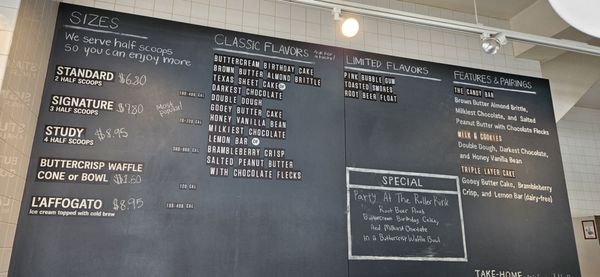 SIZES
We serve half scoops
So you can enjoy more
STANDARD
2 HALF SCOOPS
SIGNATURE
3 HALF SCOOPS
Most popular!
STUDY $8.95
4 HALF SCOOPS
BUTTERCRISP WAFFLE
CONE or BOWL
120 CAL
L'AFFOGATO $8.95
Ice cream topped with cold brew
CLASSIC FLAVORS
BUTTERCREAM BIRTHDAY CAKE
BROWN BUTTER ALMOND BRITTLE
TEXAS SHEET CAKE DF
DARKEST CHOCOLATE
DOUBLE DOUGH
GOOEY BUTTER CAKE
HONEY VANILLA BEAN
MILKIEST CHOCOLATE
LEMON BAR DF
BRAMBLEBERRY CRISP
SALTED PEANUT BUTTER
WITH CHOCOLATE FLECKS
LIMITED FLAVORS
PINK BUBBLE GUM
TOASTED SMORES
ROOT BEER FLOAT
SPECIAL
Party At The Roller Rink
Root Beer Float
Buttercream Birthday Cake,
And Milkiest Chocolate
In a Buttercrisp Waffle Bowl
FEATURES & PAIRINGS
THE CANDY BAR
Brown Butter Almond Brittle,
Milkiest Chocolate, and Salted
Peanut Butter with Chocolate Flecks
MILK & COOKIES
Double Dough, Darkest Chocolate,
and Honey Vanilla Bean
TRIPLE LAYER CAKE
Gooey Butter Cake, Brambleberry
Crisp, and Lemon Bar (dairy-free)
TAKE-HOME